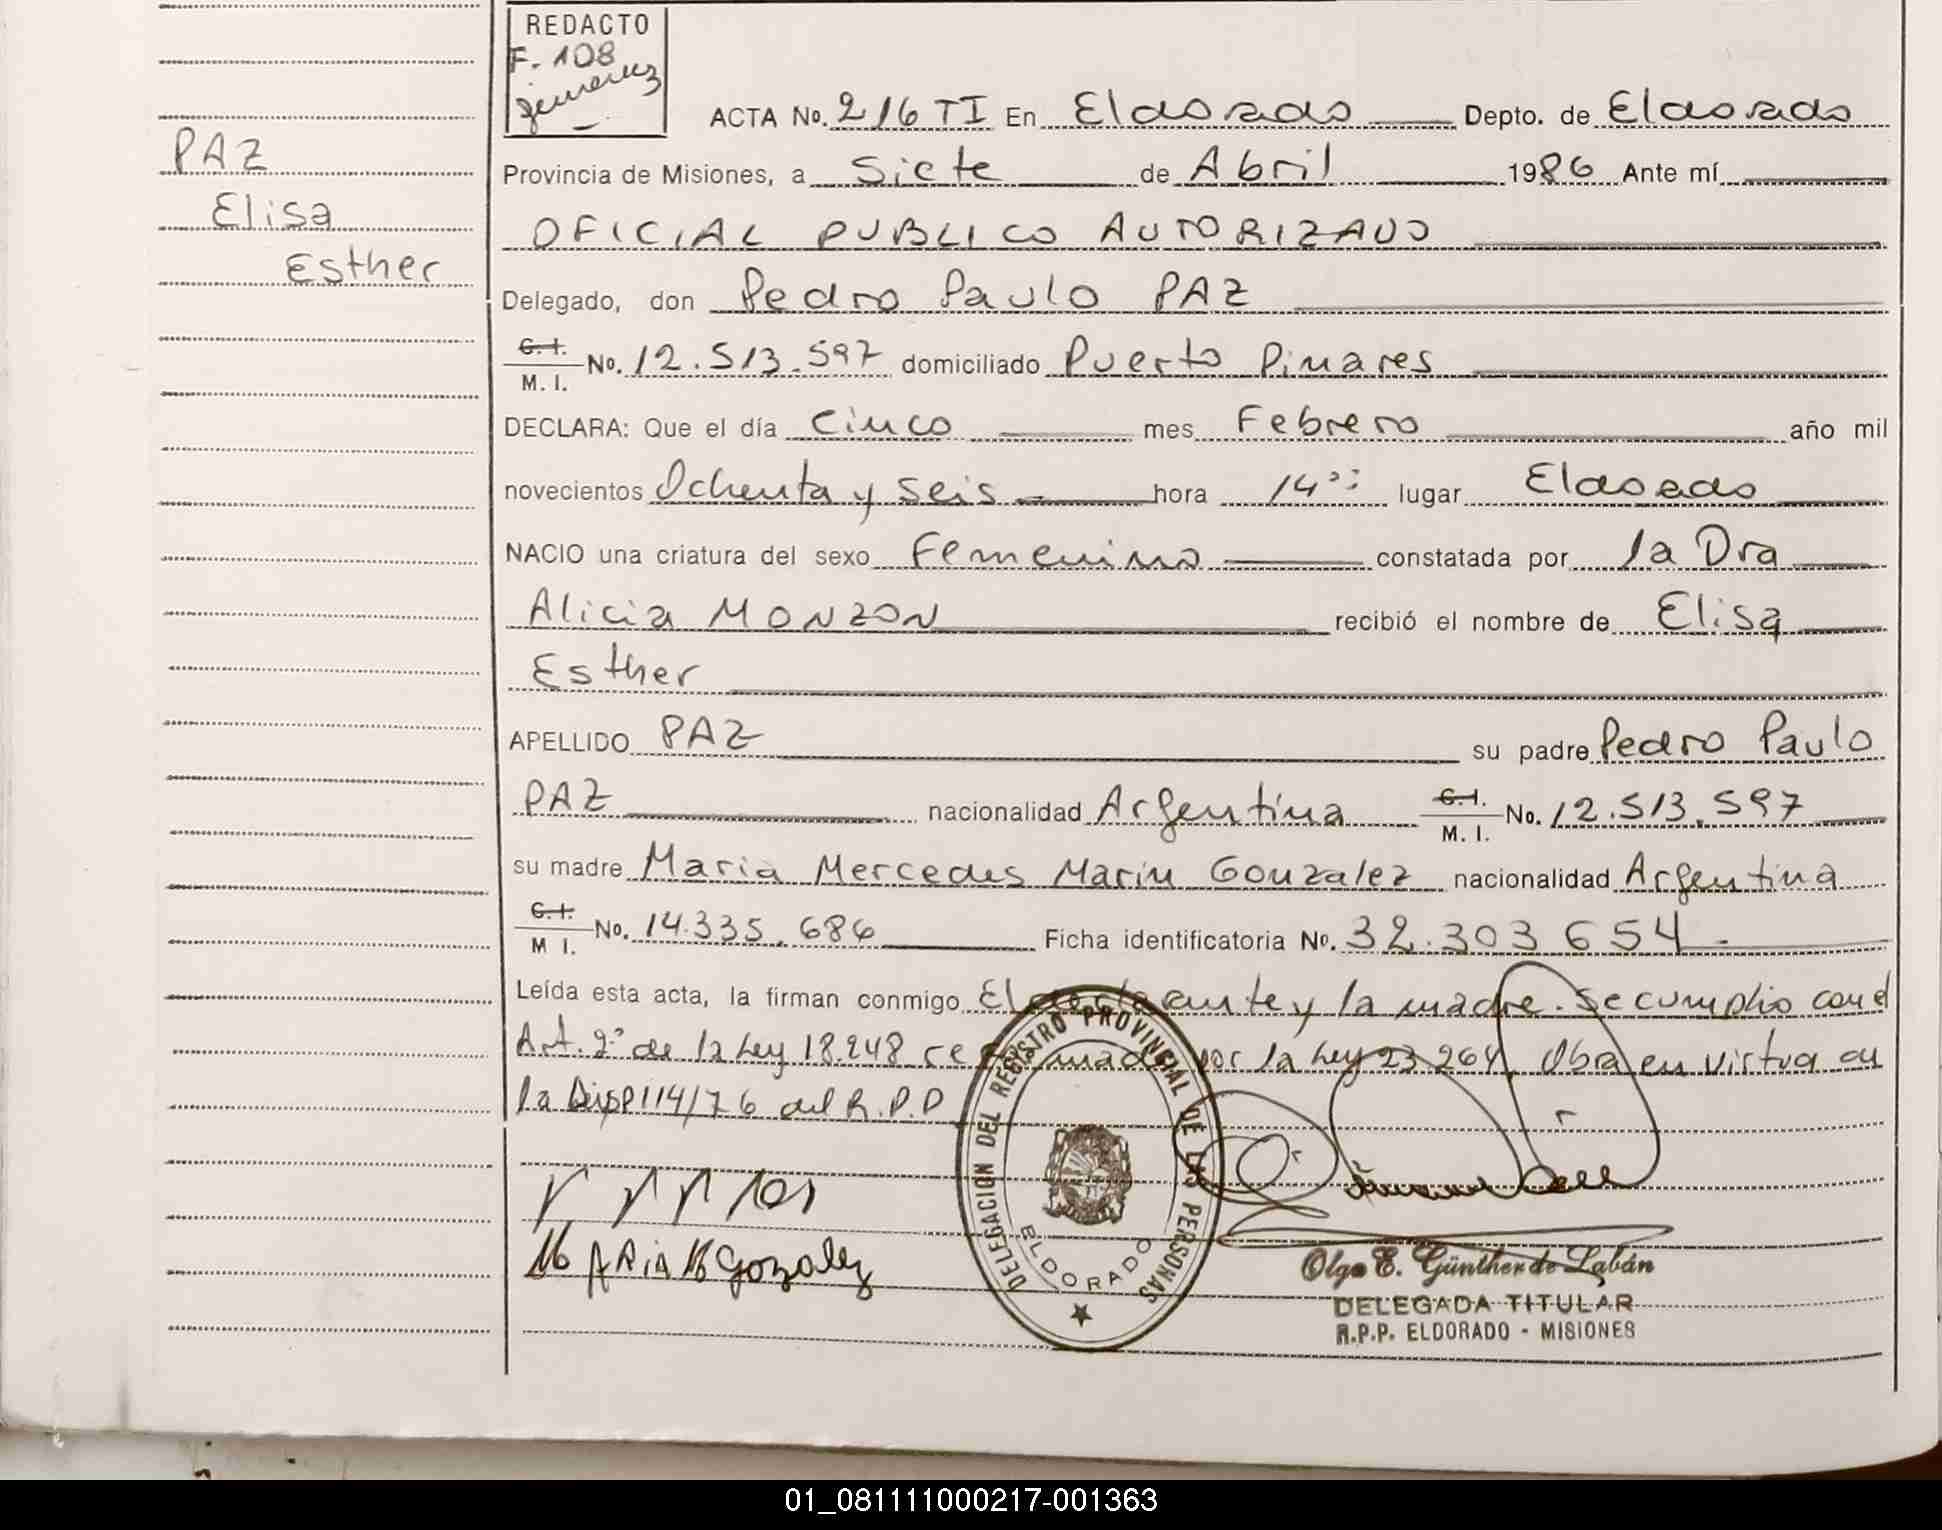 REDACTO
F. 108
Jimenez
PAZ
Elisa
Esther
ACTA No. 216 TI En Eldorado Depto. de Eldorado
Provincia de Misiones, a Siete de Abril 1986 Ante mí
OFICIAL PUBLICO AUTORIZADO
Delegado, don Pedro Paulo PAZ
C. I. M. I. No. 12.513.597 domiciliado Puerto Pinares
DECLARA: Que el día Cinco mes Febrero año mil
novecientos Ochenta y Seis hora 14 lugar Eldorado
NACIO una criatura del sexo Femenino constatada por la Dra
Alicia MONZON recibió el nombre de Elisa
Esther
APELLIDO PAZ su padre Pedro Paulo
PAZ nacionalidad Argentina C. I. M. I. No. 12.513.597
su madre Maria Mercedes Marin Gonzalez nacionalidad Argentina
C. I. M I. No. 14.335.686 Ficha identificatoria No. 32.303654
Leída esta acta, la firman conmigo El declarante y la madre. Se cumplio con el
Art. 2° de la Ley 18.248 reformada por la Ley 23264. Obra en virtud de
la Disp 114/76 del R.P.P
DELEGACION DEL REGISTRO PROVINCIAL DE LAS PERSONAS
ELDORADO
MARIA M Gonzalez
Olga E. Günther de Labán
DELEGADA TITULAR
R.P.P. ELDORADO - MISIONES
01_081111000217-001363